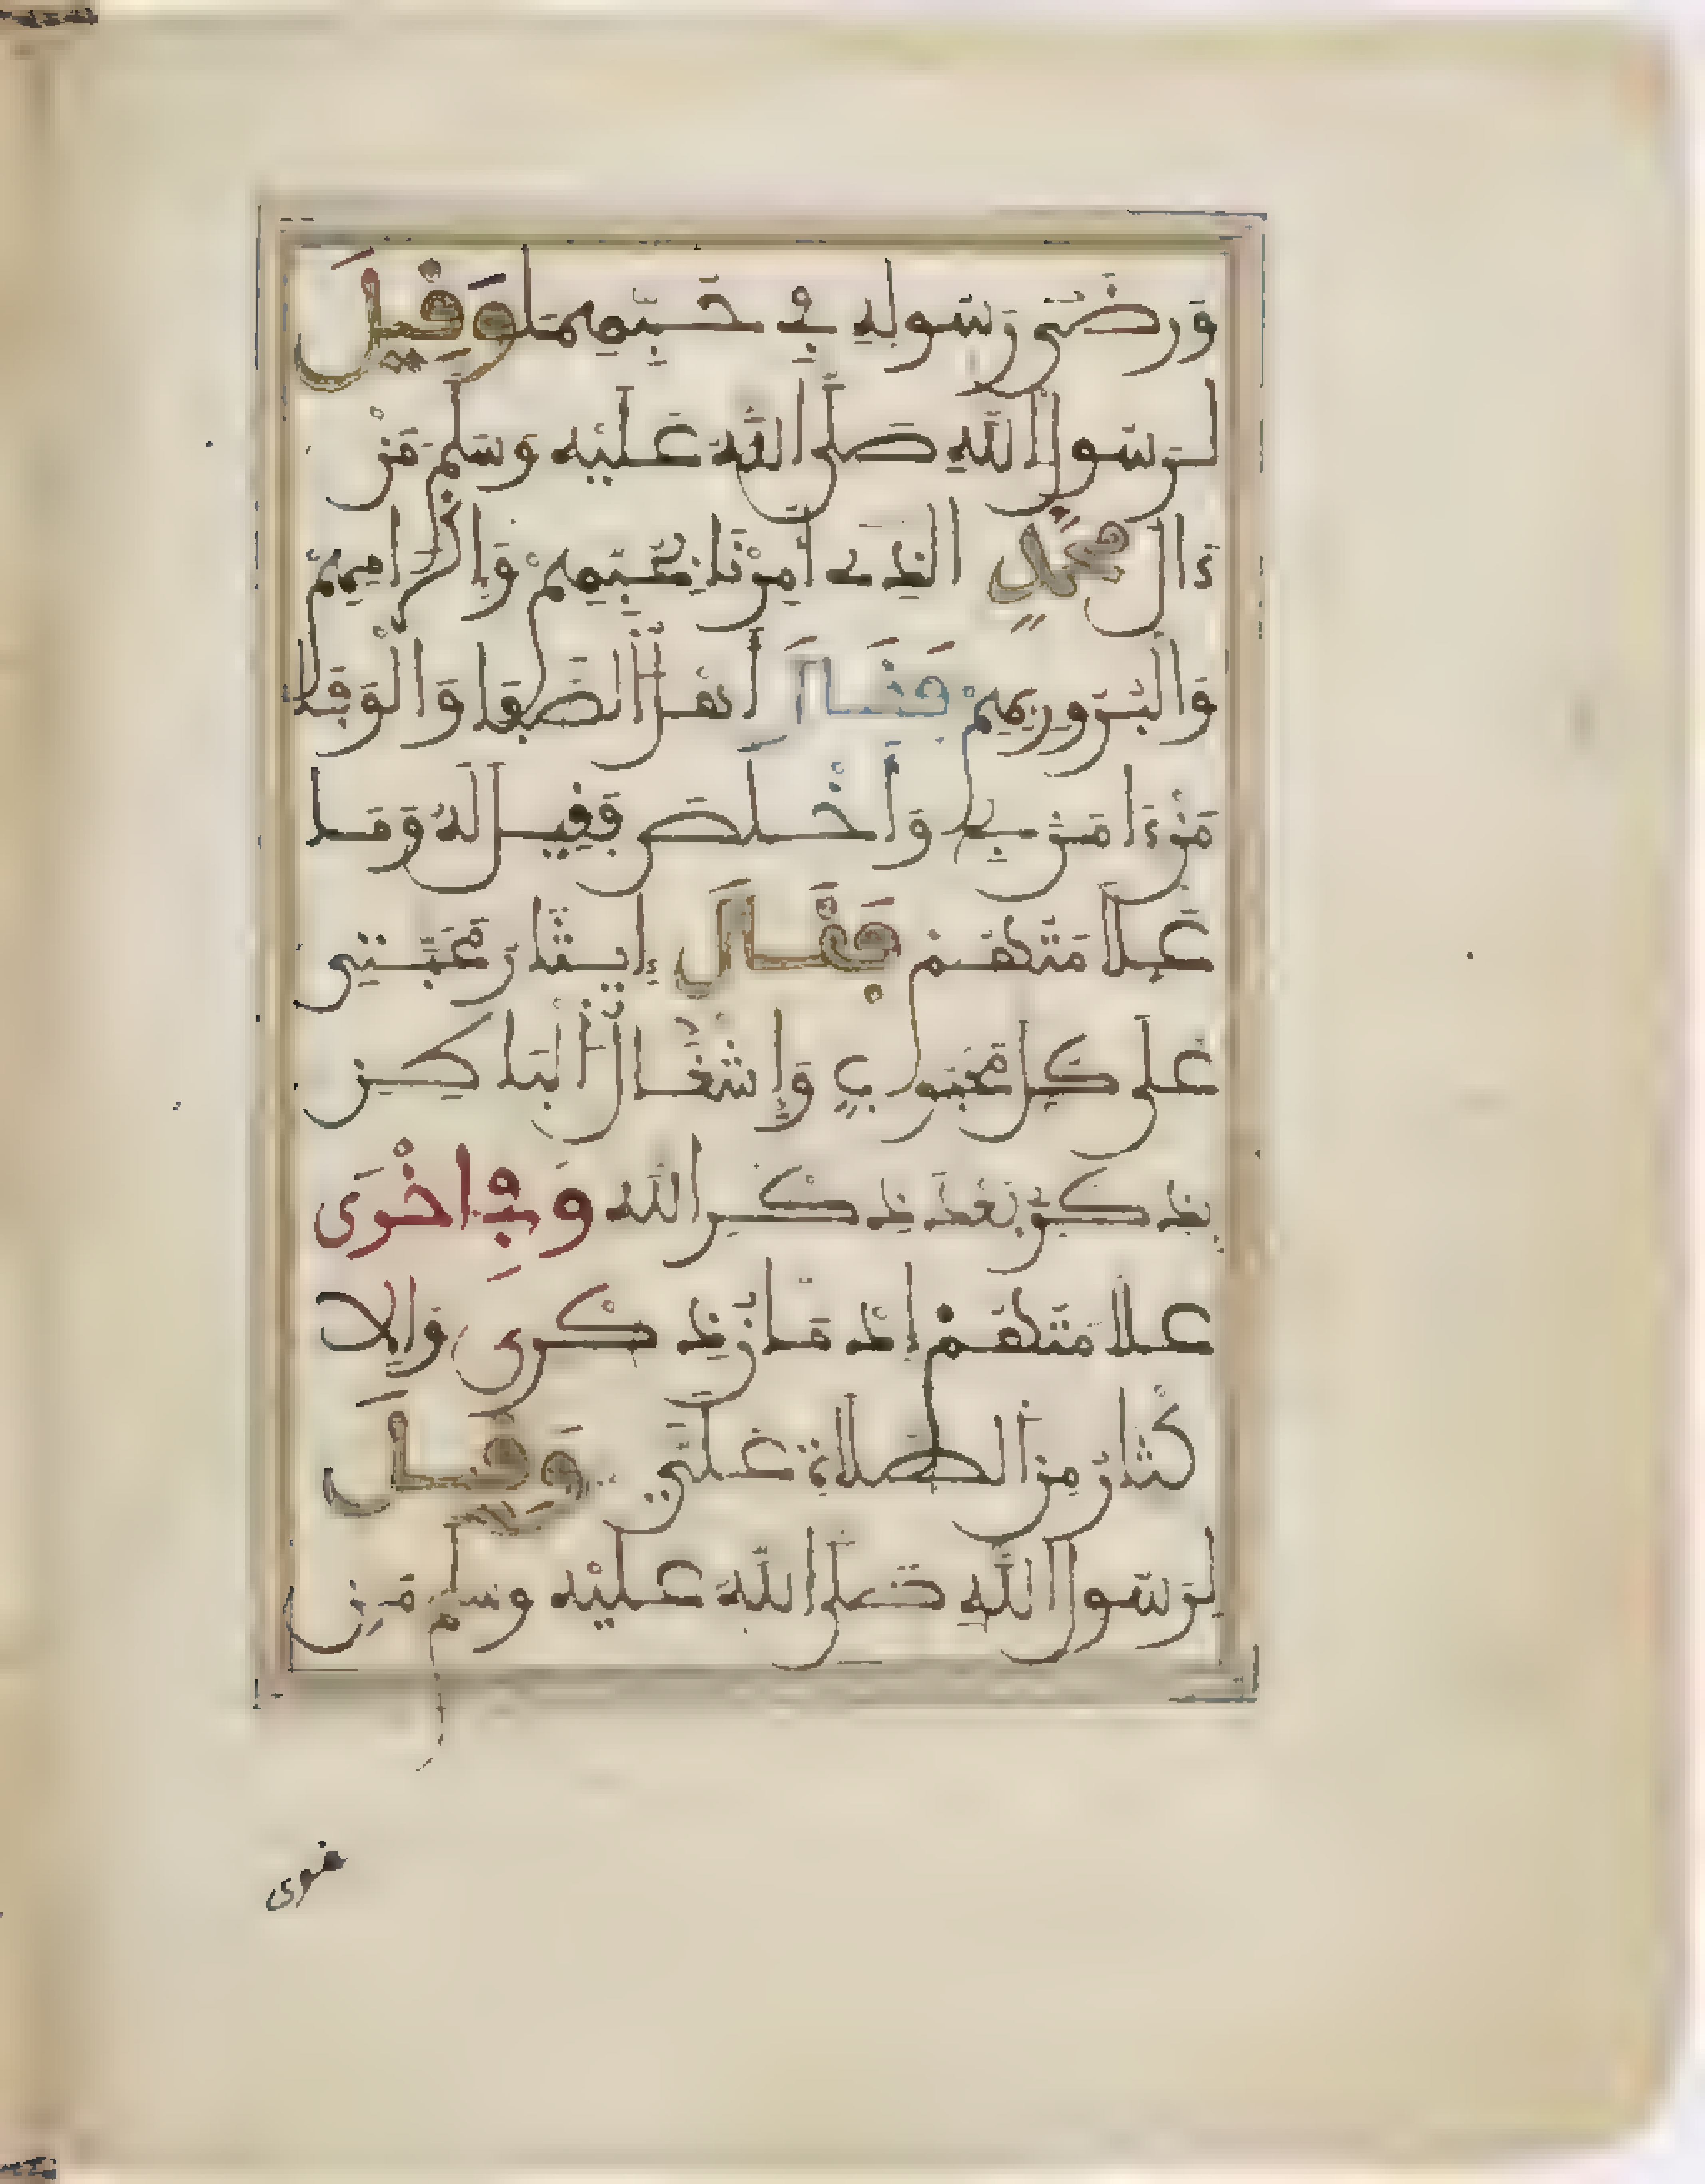 وَرِضَى رَسُولِهِ فِي حُبِّهِمَا وَقِيلَ
لِرَسُولِ اللهِ صَلَّى اللهُ عَلَيْهِ وَسَلَّمَ مَنْ
ءَالُ مُحَمَّدٍ الَّذِينَ أُمِرْنَا بِحُبِّهِمْ وَإِكْرَامِهِمْ
وَالْبُرُورِ بِهِمْ فَقَالَ أَهْلُ الصَّفَا وَالْوَفَا
مَنْ ءَامَنَ بِي وَأَخْلَصَ فَقِيلَ لَهُ وَمَا
عَلَامَتُهُمْ فَقَالَ إِيثَارُ مَحَبَّتِي
عَلَى كُلِّ مَحْبُوبٍ وَإِشْغَالُ الْبَاطِنِ
بِذِكْرِي بَعْدَ ذِكْرِ اللهِ وَفِي اخْرَى
عَلَامَتُهُمْ إِدْمَانُ ذِكْرِي وَالِا
كْثَارُ مِنَ الصَّلَاةِ عَلَيَّ وَقِيلَ
لِرَسُولِ اللهِ صَلَّى اللهُ عَلَيْهِ وَسَلَّمَ مَنِ